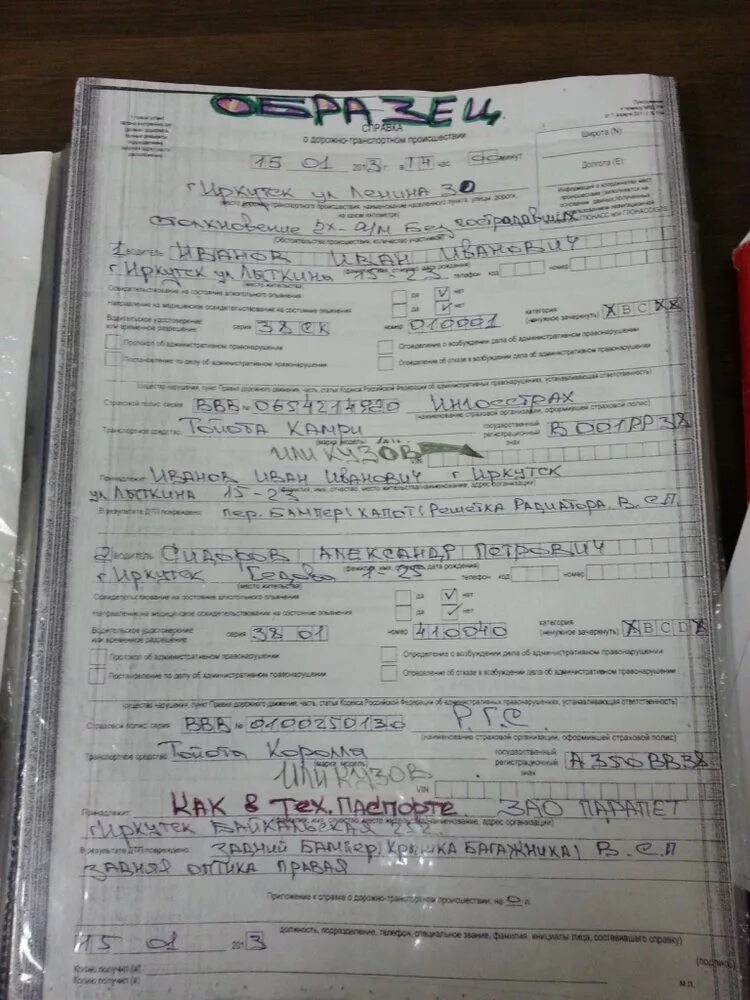 ОБРАЗЕЦ
СПРАВКА
о дорожно-транспортном происшествии
15 01 2013 г. в 14 час 00 минут
Широта (N)
Долгота (E):
г Иркутск ул Ленина 30
место дорожно-транспортного происшествия, наименование населенного пункта, улицы, дороги,
столкновение 2х-а/м без пострадавших
(обстоятельства происшествия, количество участников)
1 водитель ИВАНОВ ИВАН ИВАНОВИЧ
(фамилия, имя, отчество, дата рождения)
г Иркутск ул Лыткина 15-23 телефон код номер
(место жительства)
Освидетельствование на состояние алкогольного опьянения да нет
Направление на медицинское освидетельствование на состояние опьянения да нет
Водительское удостоверение или временное разрешение серия 38 СК номер 010001 категория (ненужное зачеркнуть) B C
Протокол об административном правонарушении
Определение о возбуждении дела об административном правонарушении
Постановление по делу об административном правонарушении
Определение об отказе в возбуждении дела об административном правонарушении
(существо нарушения, пункт Правил дорожного движения, часть, статья Кодекса Российской Федерации об административных правонарушениях, устанавливающая ответственность)
Страховой полис серия ВВВ № ИНГОССТРАХ
(наименование страховой организации, оформившей страховой полис)
Транспортное средство ТОЙОТА КАМРИ государственный регистрационный знак В 001 РР 38
(марка, модель)
ИЛИ КУЗОВ
Принадлежит ИВАНОВ ИВАН ИВАНОВИЧ г Иркутск
ул Лыткина 15-23
(фамилия, имя, отчество, место жительства/наименование, адрес организации)
В результате ДТП повреждено: пер. БАМПЕР, КАПОТ, РЕШЕТКА РАДИАТОРА. В.С.П.
2 водитель СИДОРОВ АЛЕКСАНДР ПЕТРОВИЧ
(фамилия, имя, отчество, дата рождения)
г Иркутск Седова 1-25 телефон код номер
(место жительства)
Освидетельствование на состояние алкогольного опьянения да нет
Направление на медицинское освидетельствование на состояние опьянения да нет
Водительское удостоверение или временное разрешение серия 38 01 номер 410040 категория (ненужное зачеркнуть) B C D
Протокол об административном правонарушении
Определение о возбуждении дела об административном правонарушении
Постановление по делу об административном правонарушении
Определение об отказе в возбуждении дела об административном правонарушении
(существо нарушения, пункт Правил дорожного движения, часть, статья Кодекса Российской Федерации об административных правонарушениях, устанавливающая ответственность)
Страховой полис серия ВВВ № 0100250130 Р.Г.С.
(наименование страховой организации, оформившей страховой полис)
Транспортное средство Тойота Королла государственный регистрационный знак А 350 ВВ 38
(марка, модель)
ИЛИ КУЗОВ VIN
Принадлежит: КАК В ТЕХ. ПАСПОРТЕ ЗАО ПАРАПЕТ
г Иркутск БАЙКАЛЬСКАЯ
В результате ДТП повреждено: ЗАДНИЙ БАМПЕР, КРЫШКА БАГАЖНИКА, В.С.П
ЗАДНЯЯ ОПТИКА ПРАВАЯ
Приложение к справке о дорожно-транспортном происшествии, на 0 л.
15 01 2013
должность, подразделение, телефон, специальное звание, фамилия, инициалы лица, составившего справку)
(подпись)
Копию получил (а)
Копию получил (а)
М.П.